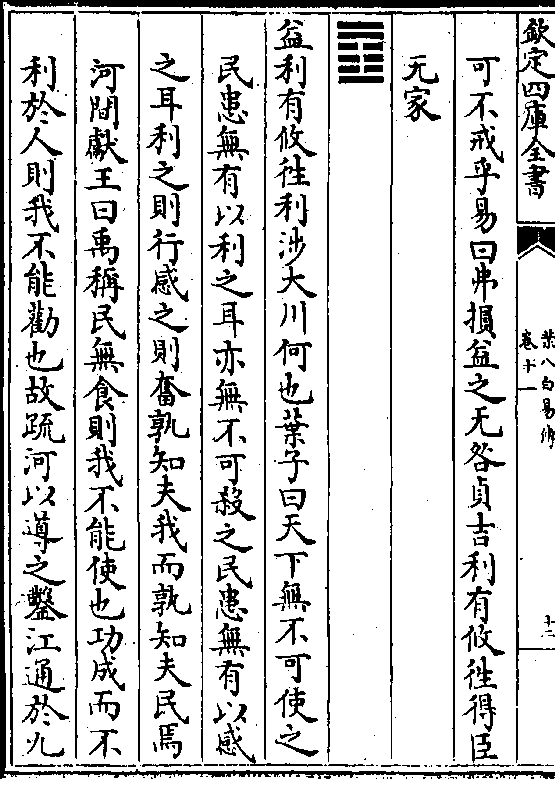 欽定四庫全書
葉八白易傳
卷十一
十二
可不戒乎易曰弗損益之无咎貞吉利有攸往得臣
无家
益利有攸往利涉大川何也葉子曰天下無不可使之
民患無有以利之耳亦無不可殺之民患無有以感
之耳利之則行感之則奮孰知夫我而孰知夫民焉
河間獻王曰禹稱民無食則我不能使也功成而不
利於人則我不能勸也故疏河以導之鑿江通於九